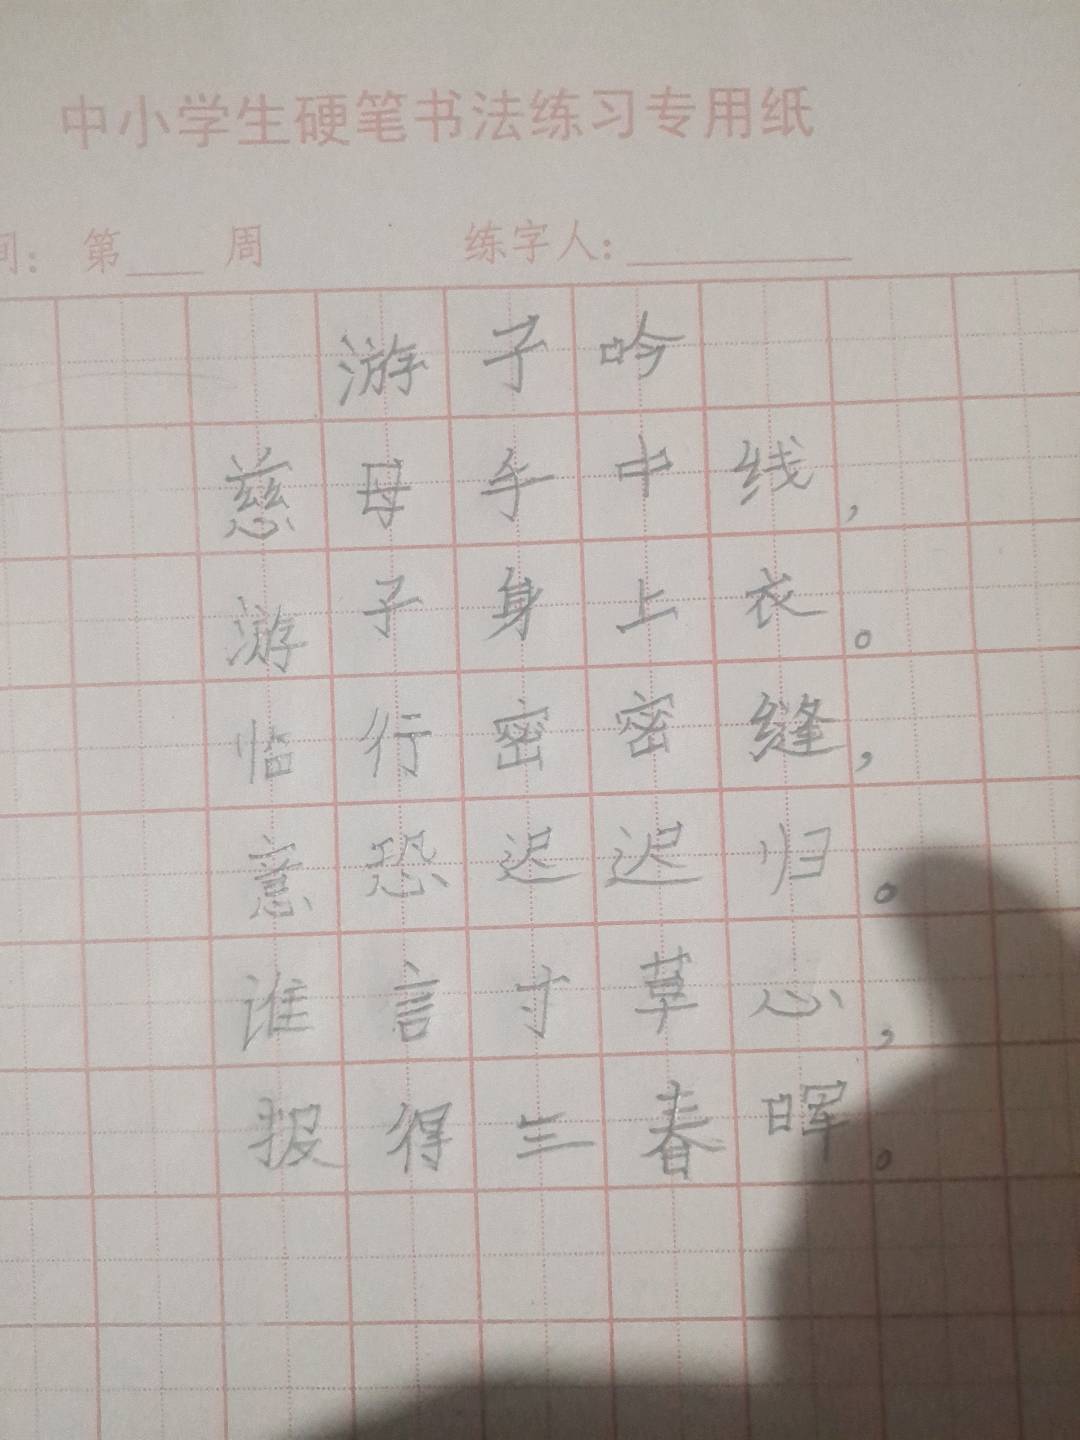 中小学生硬笔书法练习专用纸
间：第___周 练字人：________
游子吟
慈母手中线，
游子身上衣。
临行密密缝，
意恐迟迟归。
谁言寸草心，
报得三春晖。